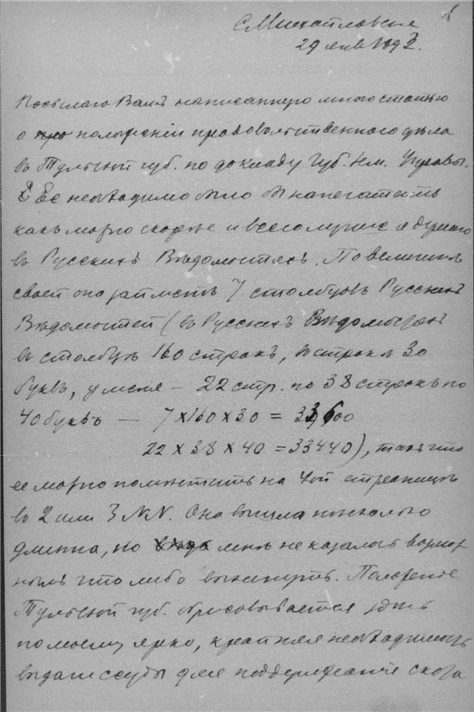 1
с. Михайловское
29 янв 1892.
Посылаю Вамъ написанную мною статью
о положенiи продовольственнаго дѣла
въ Тульской губ. по докладу Губ. Зем. Управы.
Ее необходимо было бы напечатать
какъ можно скорѣе и всего лучше я думаю
въ Русскихъ Вѣдомостяхъ. По величинѣ
своей она займетъ 7 столбцовъ Русскихъ
Вѣдомостей (въ Русскихъ Вѣдомостяхъ
въ столбцѣ 160 строкъ, въ строкѣ 30
буквъ, у меня — 22 стр. по 38 строкъ по
40 буквъ — 7 × 160 × 30 = 33,600
22 × 38 × 40 = 33440), такъ что
ее можно помѣстить на 4ой страницѣ
въ 2 или 3 NN. Она вышла нѣсколько
длинна, но мнѣ не казалось возмож
нымъ что либо выкинуть. Положенiе
Тульской губ. обрисовывается здѣсь
по моему ярко, крайняя необходимость
выдачи ссуды для поддержанiя скота